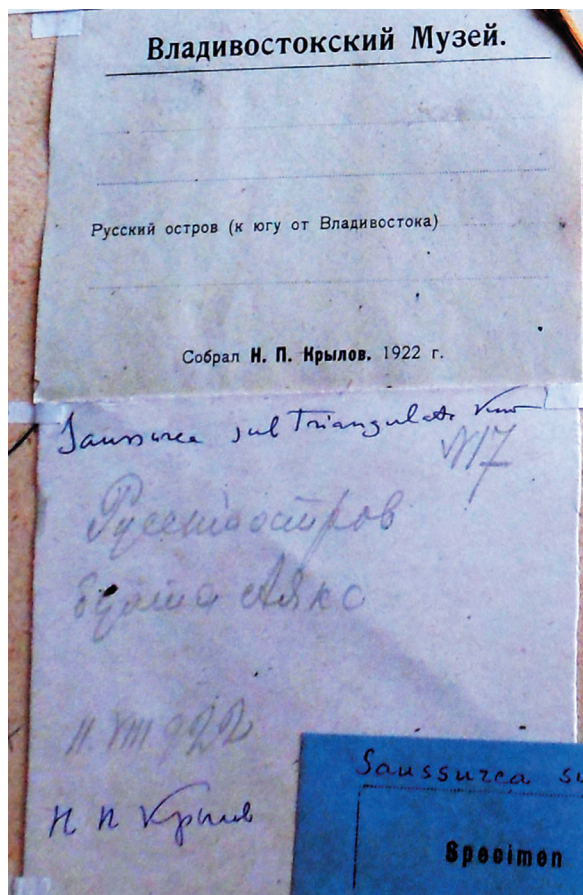 Владивостокский Музей.
Русский остров (к югу от Владивостока)
Собрал Н. П. Крылов. 1922 г.
Saussurea subtriangulata Kom
№17
Русский остров
бухта Аякс
11. VIII 922
Н П Крылов
Saussurea su
Specimen